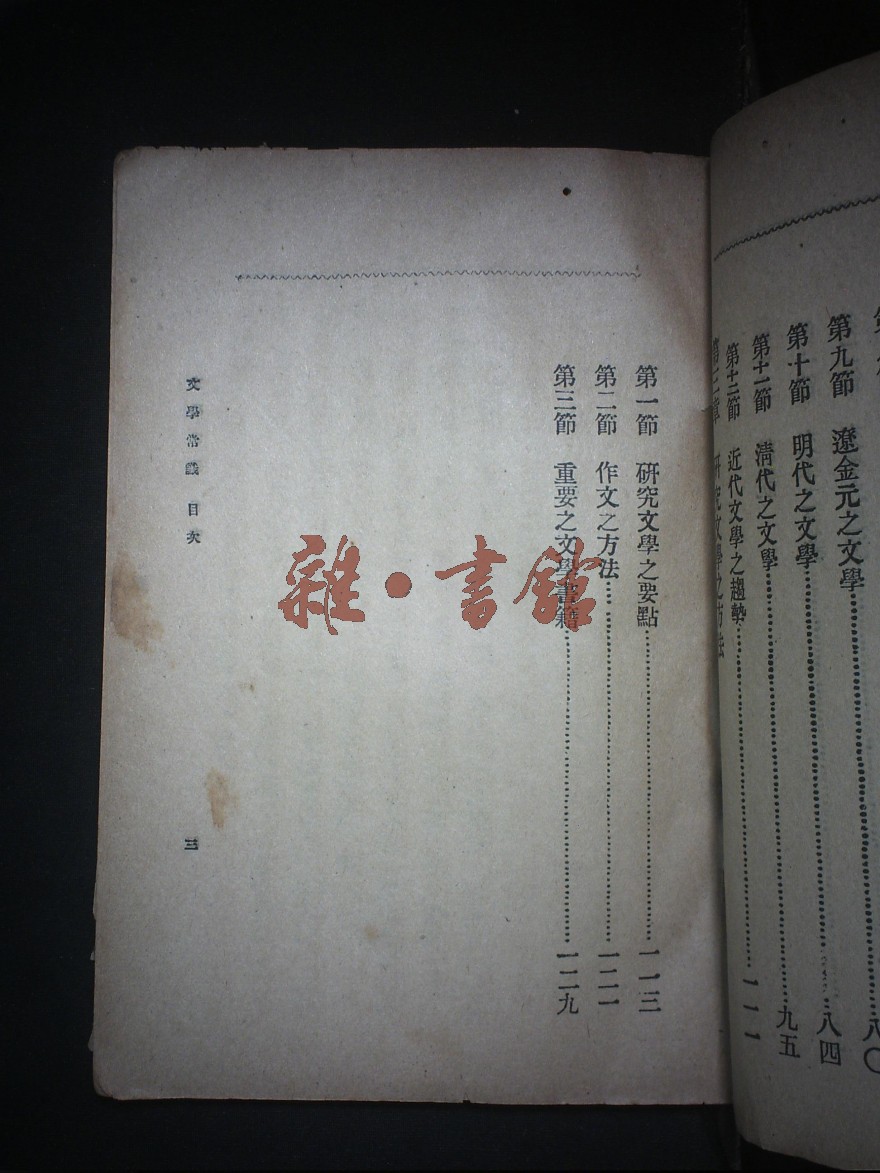 第九節 遼金元之文學……八〇
第十節 明代之文學……八四
第十一節 清代之文學……九五
第十二節 近代文學之趨勢……一一一
研究文學之方法
第一節 研究文學之要點……一一三
第二節 作文之方法……一二一
第三節 重要之文學書籍……一二九
文學常識 目次
三
雜·書館